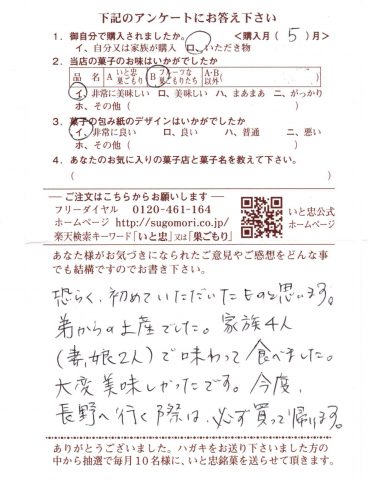 下記のアンケートにお答え下さい
1. 御自分で購入されましたか。　＜購入月（ 5 ）月＞
イ、自分又は家族が購入　ロ、いただき物
2. 当店の菓子のお味はいかがでしたか
品　名　A いと忠巣ごもり　B フルーツな巣ごもりたち　A・B以外（　　　）
イ、非常に美味しい　ロ、美味しい　ハ、まあまあ　ニ、がっかり
ホ、その他（　　　）
3. 菓子の包み紙のデザインはいかがでしたか
イ、非常に良い　ロ、良い　ハ、普通　ニ、悪い
ホ、その他（　　　）
4. あなたのお気に入りの菓子店と菓子名を教えて下さい。
（　　　）
―ご注文はこちらからお願いします―
フリーダイヤル　0120-461-164
ホームページ　http://sugomori.co.jp/
楽天検索キーワード「いと忠」又は「巣ごもり」
いと忠公式
ホームページ
あなた様がお気づきになられたご意見やご感想をどんな事
でも結構ですのでお書き下さい。
恐らく、初めていただいたものと思います。
弟からの土産でした。家族4人
（妻,娘2人）で味わって食べました。
大変美味しかったです。今度、
長野へ行く際は、必ず買って帰ります。
ありがとうございました。ハガキをお送り下さいました方の
中から抽選で毎月10名様に、いと忠銘菓を送らせて頂きます。